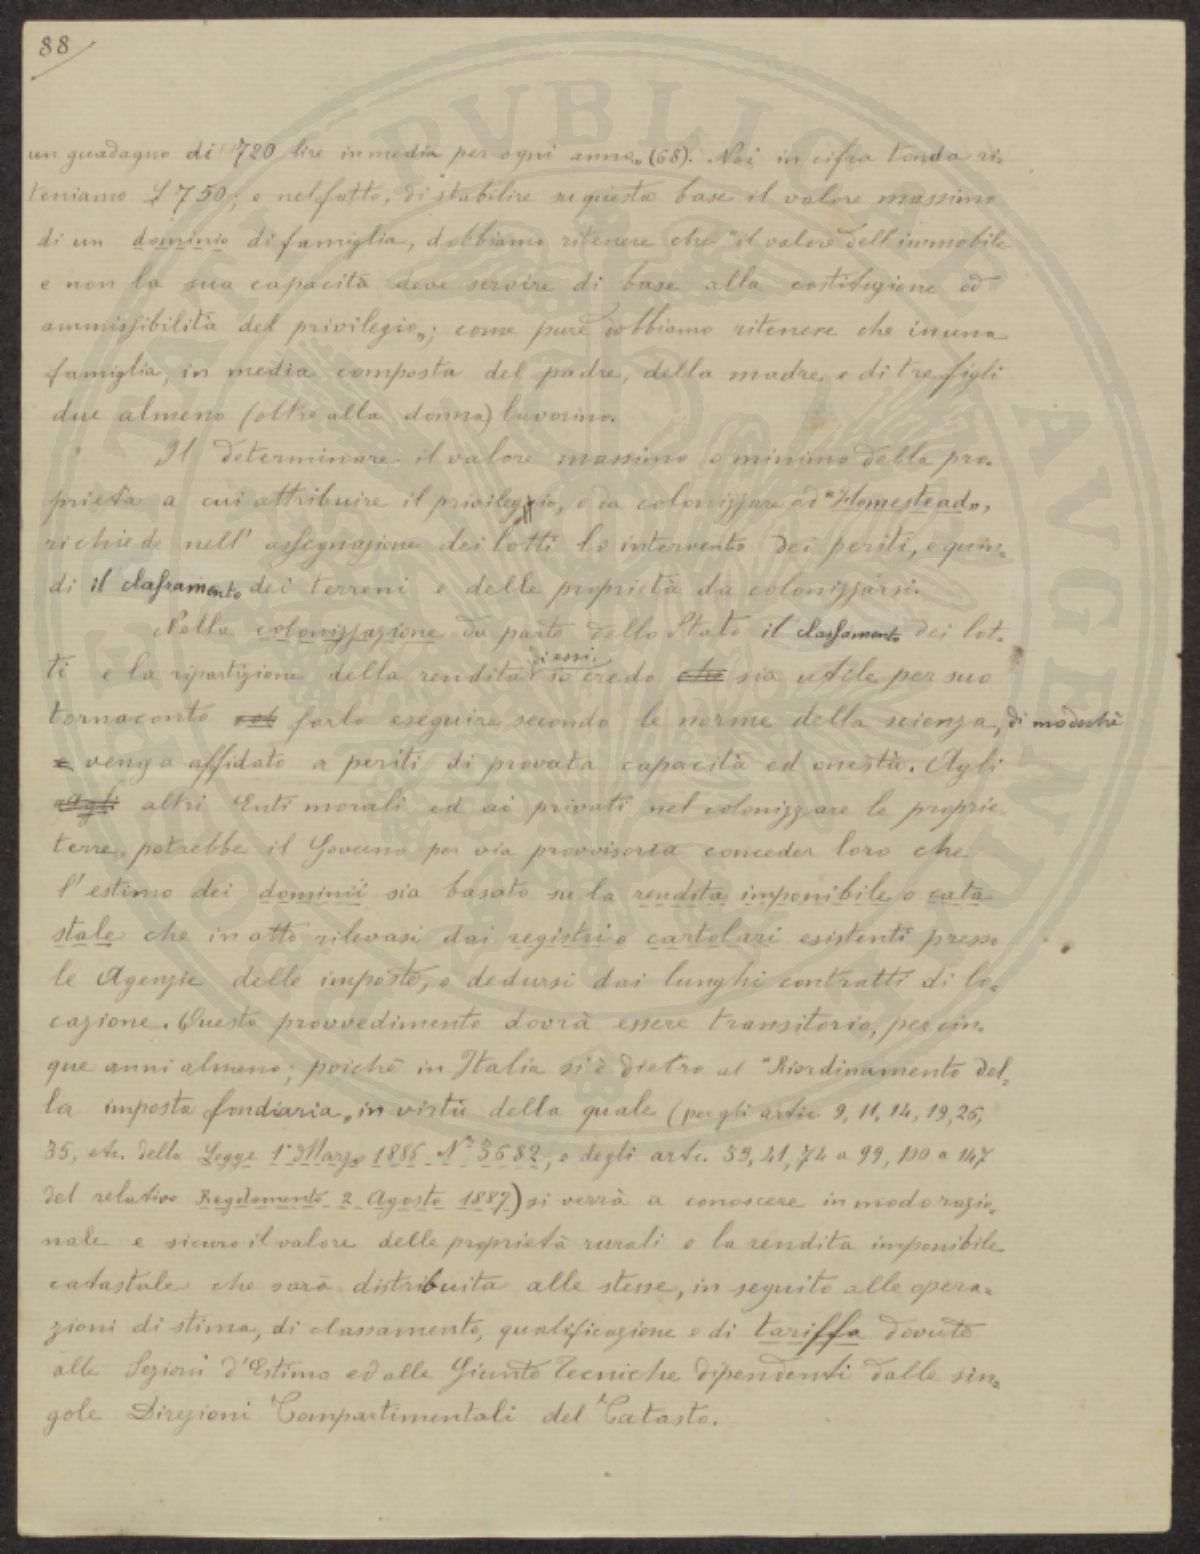 88
un guadagno di 720 lire in media per ogni anno„ (68). Noi in cifra tonda ri-
teniamo £ 750; e nel fatto, di stabilire su questa base il valore massimo
di un dominio di famiglia, dobbiamo ritenere che "il valore dell'immobile
e non la sua capacità deve servire di base alla costituzione ed
ammissibilità del privilegio„; come pure dobbiamo ritenere che in una
famiglia, in media composta del padre, della madre e di tre figli
due almeno (oltre alla donna) lavorino.
Il determinare il valore massimo o minimo della pro-
prietà a cui attribuire il privilegio, e da colonizzare ad "Homestead„,
richiede nell'assegnazione dei lotti lo intervento dei periti, e quin-
di il classamento dei terreni e delle proprietà da colonizzarsi.
Nella colonizzazione da parte dello Stato il classamento dei lot-
ti e la ripartizione della rendita di essi, io credo che sia utile per suo
tornaconto farlo eseguire secondo le norme della scienza, di modochè
e venga affidato a periti di provata capacità ed onestà. Agli
Agli altri Enti morali ed ai privati nel colonizzare le proprie
terre, potrebbe il Governo per via provvisoria conceder loro che
l'estimo dei dominii sia basato su la rendita imponibile o cata
stale che in atto rilevasi dai registri e cartolari esistenti presso
le Agenzie delle imposte, o dedursi dai lunghi contratti di lo-
cazione. Questo provvedimento dovrà essere transitorio, per cin-
que anni almeno; poichè in Italia si è dietro al "Riordinamento del-
la imposta fondiaria„ in virtù della quale (per gli artic. 9, 11, 14, 19, 26,
35, etc. della Legge 1° Marzo 1886 N° 3682, e degli artc. 39, 41, 74 a 99, 100 a 147
del relativo Regolamento 2 Agosto 1887) si verrà a conoscere in modo razio-
nale e sicuro il valore delle proprietà rurali e la rendita imponibile
catastale che sarà distribuita alle stesse, in seguito alle opera-
zioni di stima, di classamento, qualificazione e di tariffa dovute
alle Sezioni d'Estimo ed alle Giunte Tecniche dipendenti dalle sin-
gole Direzioni Compartimentali del Catasto.